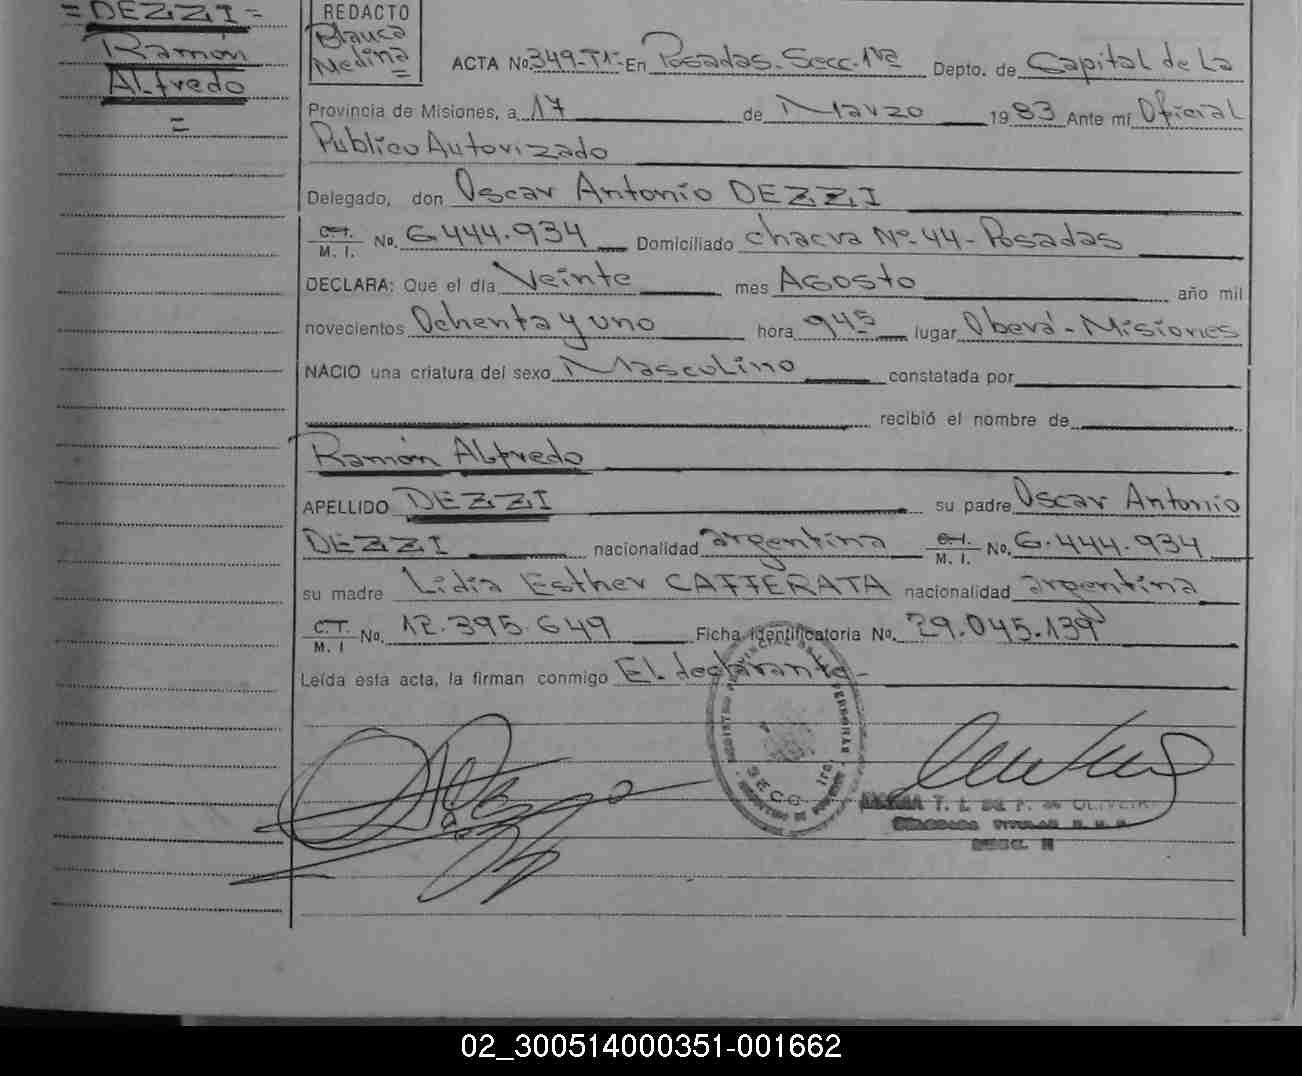 =DEZZI=
Ramón
Alfredo
=
REDACTO
Blanca
Medina
=
ACTA No. 349-T1- En Posadas. Secc. 1ra Depto. de Capital de La
Provincia de Misiones, a 17 de Marzo 1983 Ante mí Oficial
Publico Autorizado
Delegado, don Oscar Antonio DEZZI
C.I. M. I. No. 6.444.934 Domiciliado chacra Nº-44-Posadas
DECLARA: Que el día Veinte mes Agosto año mil
novecientos Ochenta y uno hora 9 45 lugar Oberá - Misiones
NACIO una criatura del sexo Masculino constatada por
recibió el nombre de
Ramón Alfredo
APELLIDO DEZZI su padre Oscar Antonio
DEZZI nacionalidad argentina C.I. M. I. No. 6.444.934
su madre Lidia Esther CAFFERATA nacionalidad argentina
C.T. M. I No. 12.395.649 Ficha Identificatoria No. 29.045.139
Leída esta acta, la firman conmigo El declarante-
REGISTRO PROVINCIAL DE LAS PERSONAS
SECC. 1ra
T. L. DE P. DE OLIVEIRA
TITULAR
02_300514000351-001662